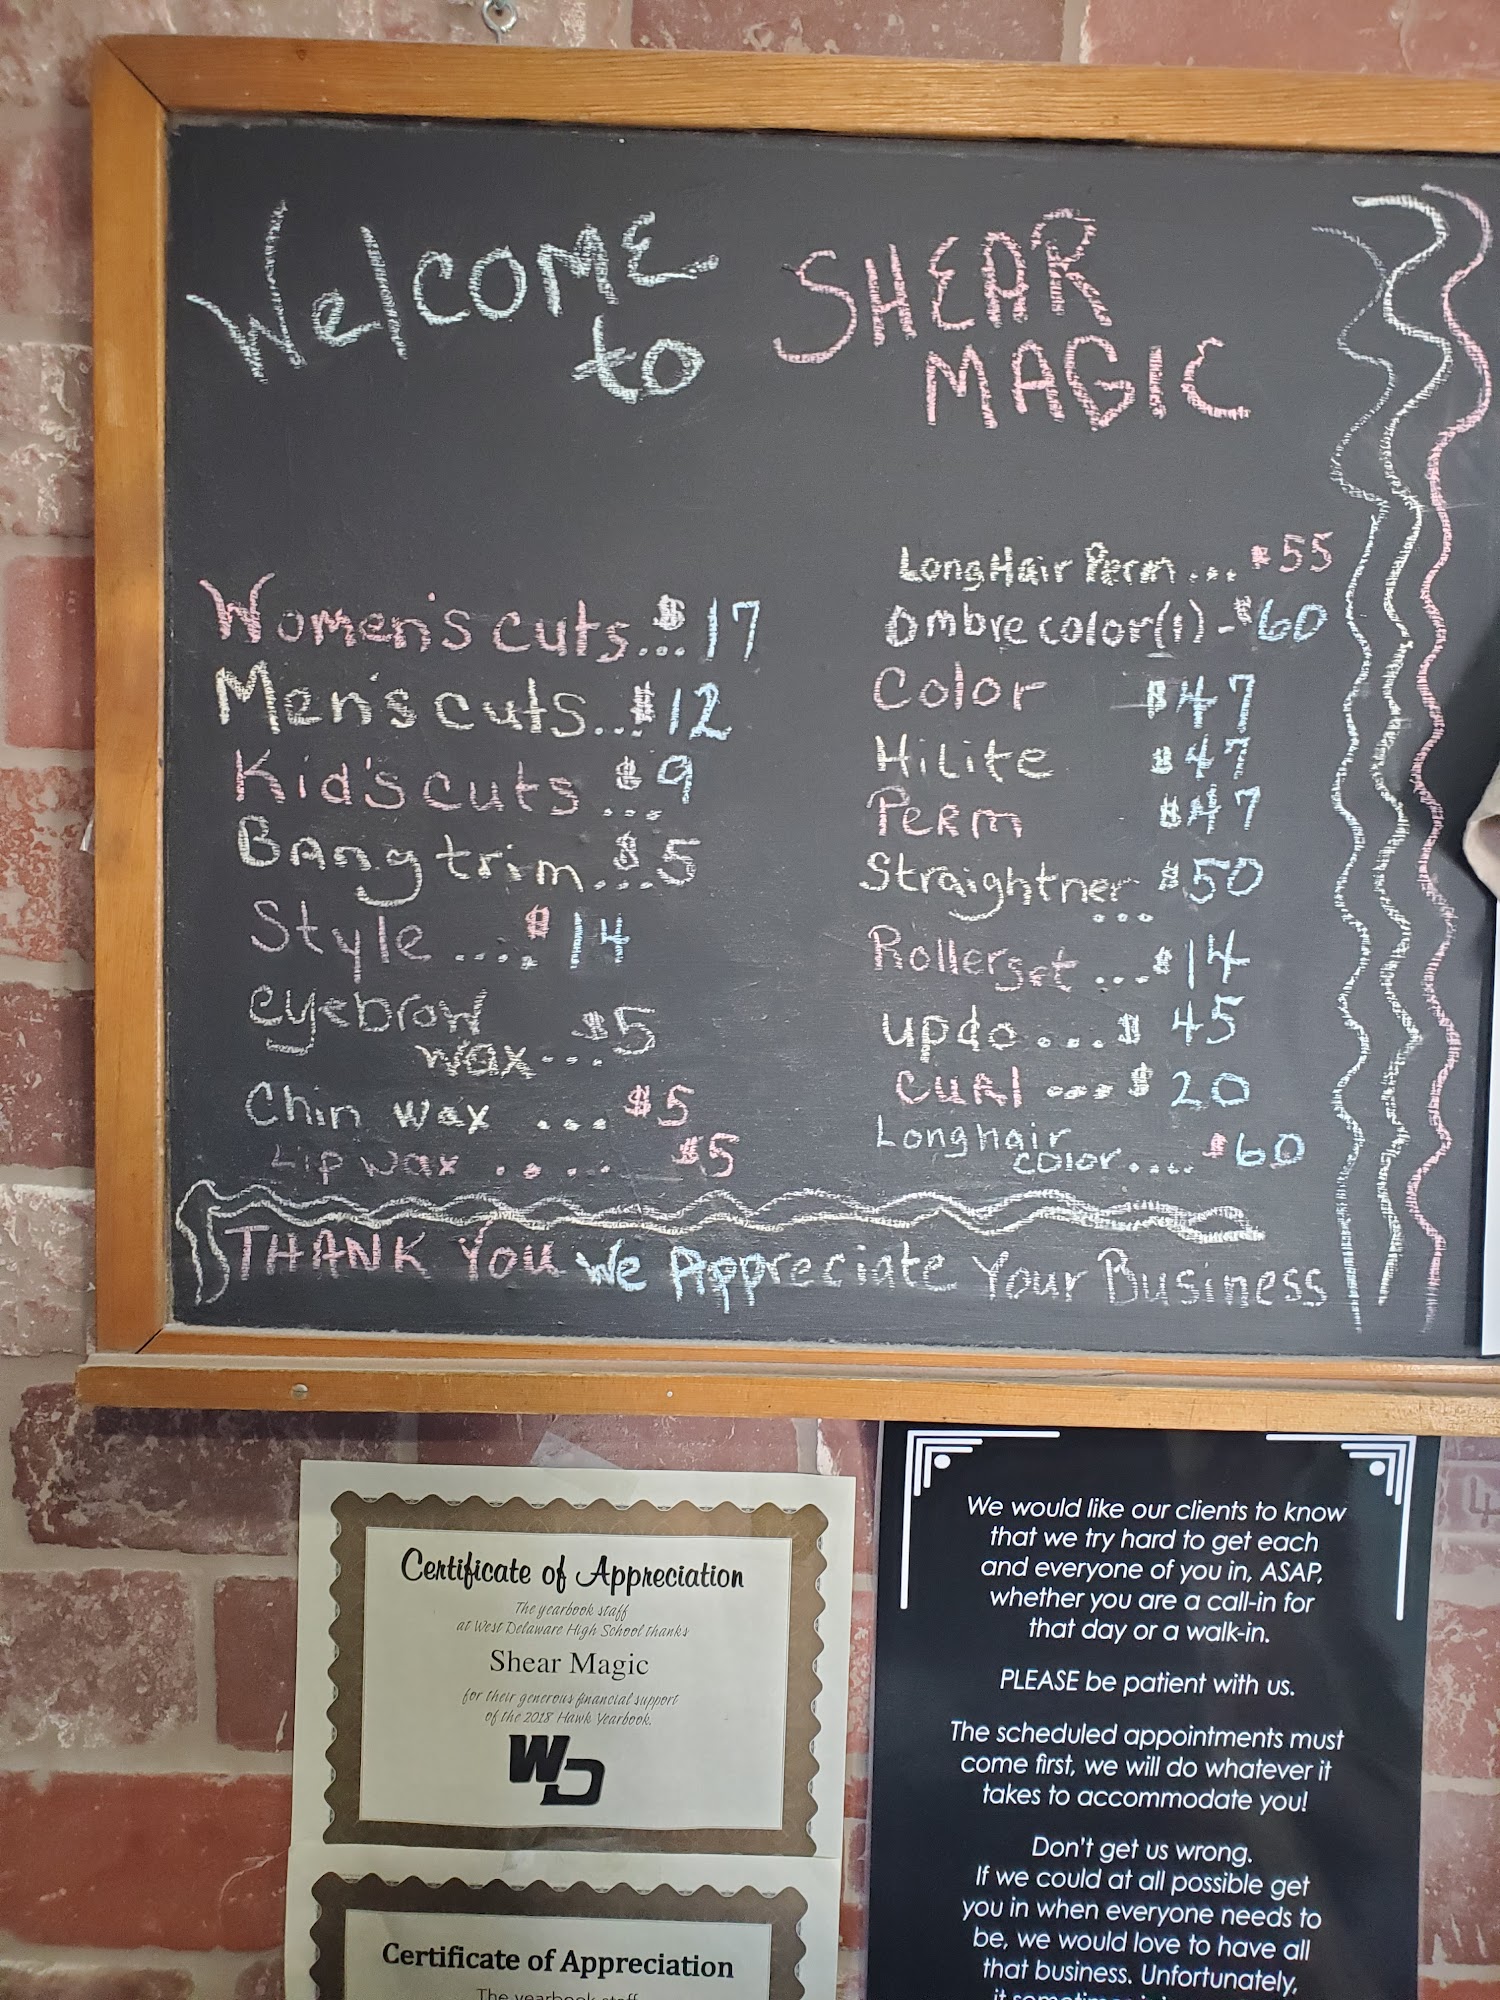 Welcome to SHEAR MAGIC
Women's cuts...$17
Men's cuts...$12
Kid's cuts...$9
Bang trim...$5
Style....$14
eyebrow
wax...$5
Chin wax ...$5
Lip wax ....$5
Long Hair Perm...$55
Ombre color(1)-$60
Color $47
HiLite $47
Perm $47
Straightner...$50
Rollerset...$14
updo...$45
CURl...$20
Long hair
color....$60
THANK YOU We Appreciate Your Business
Certificate of Appreciation
The yearbook staff
at West Delaware High School thanks
Shear Magic
for their generous financial support
of the 2018 Hawk Yearbook.
WD
Certificate of Appreciation
The yearbook staff
We would like our clients to know
that we try hard to get each
and everyone of you in, ASAP,
whether you are a call-in for
that day or a walk-in.
PLEASE be patient with us.
The scheduled appointments must
come first, we will do whatever it
takes to accommodate you!
Don't get us wrong.
If we could at all possible get
you in when everyone needs to
be, we would love to have all
that business. Unfortunately,